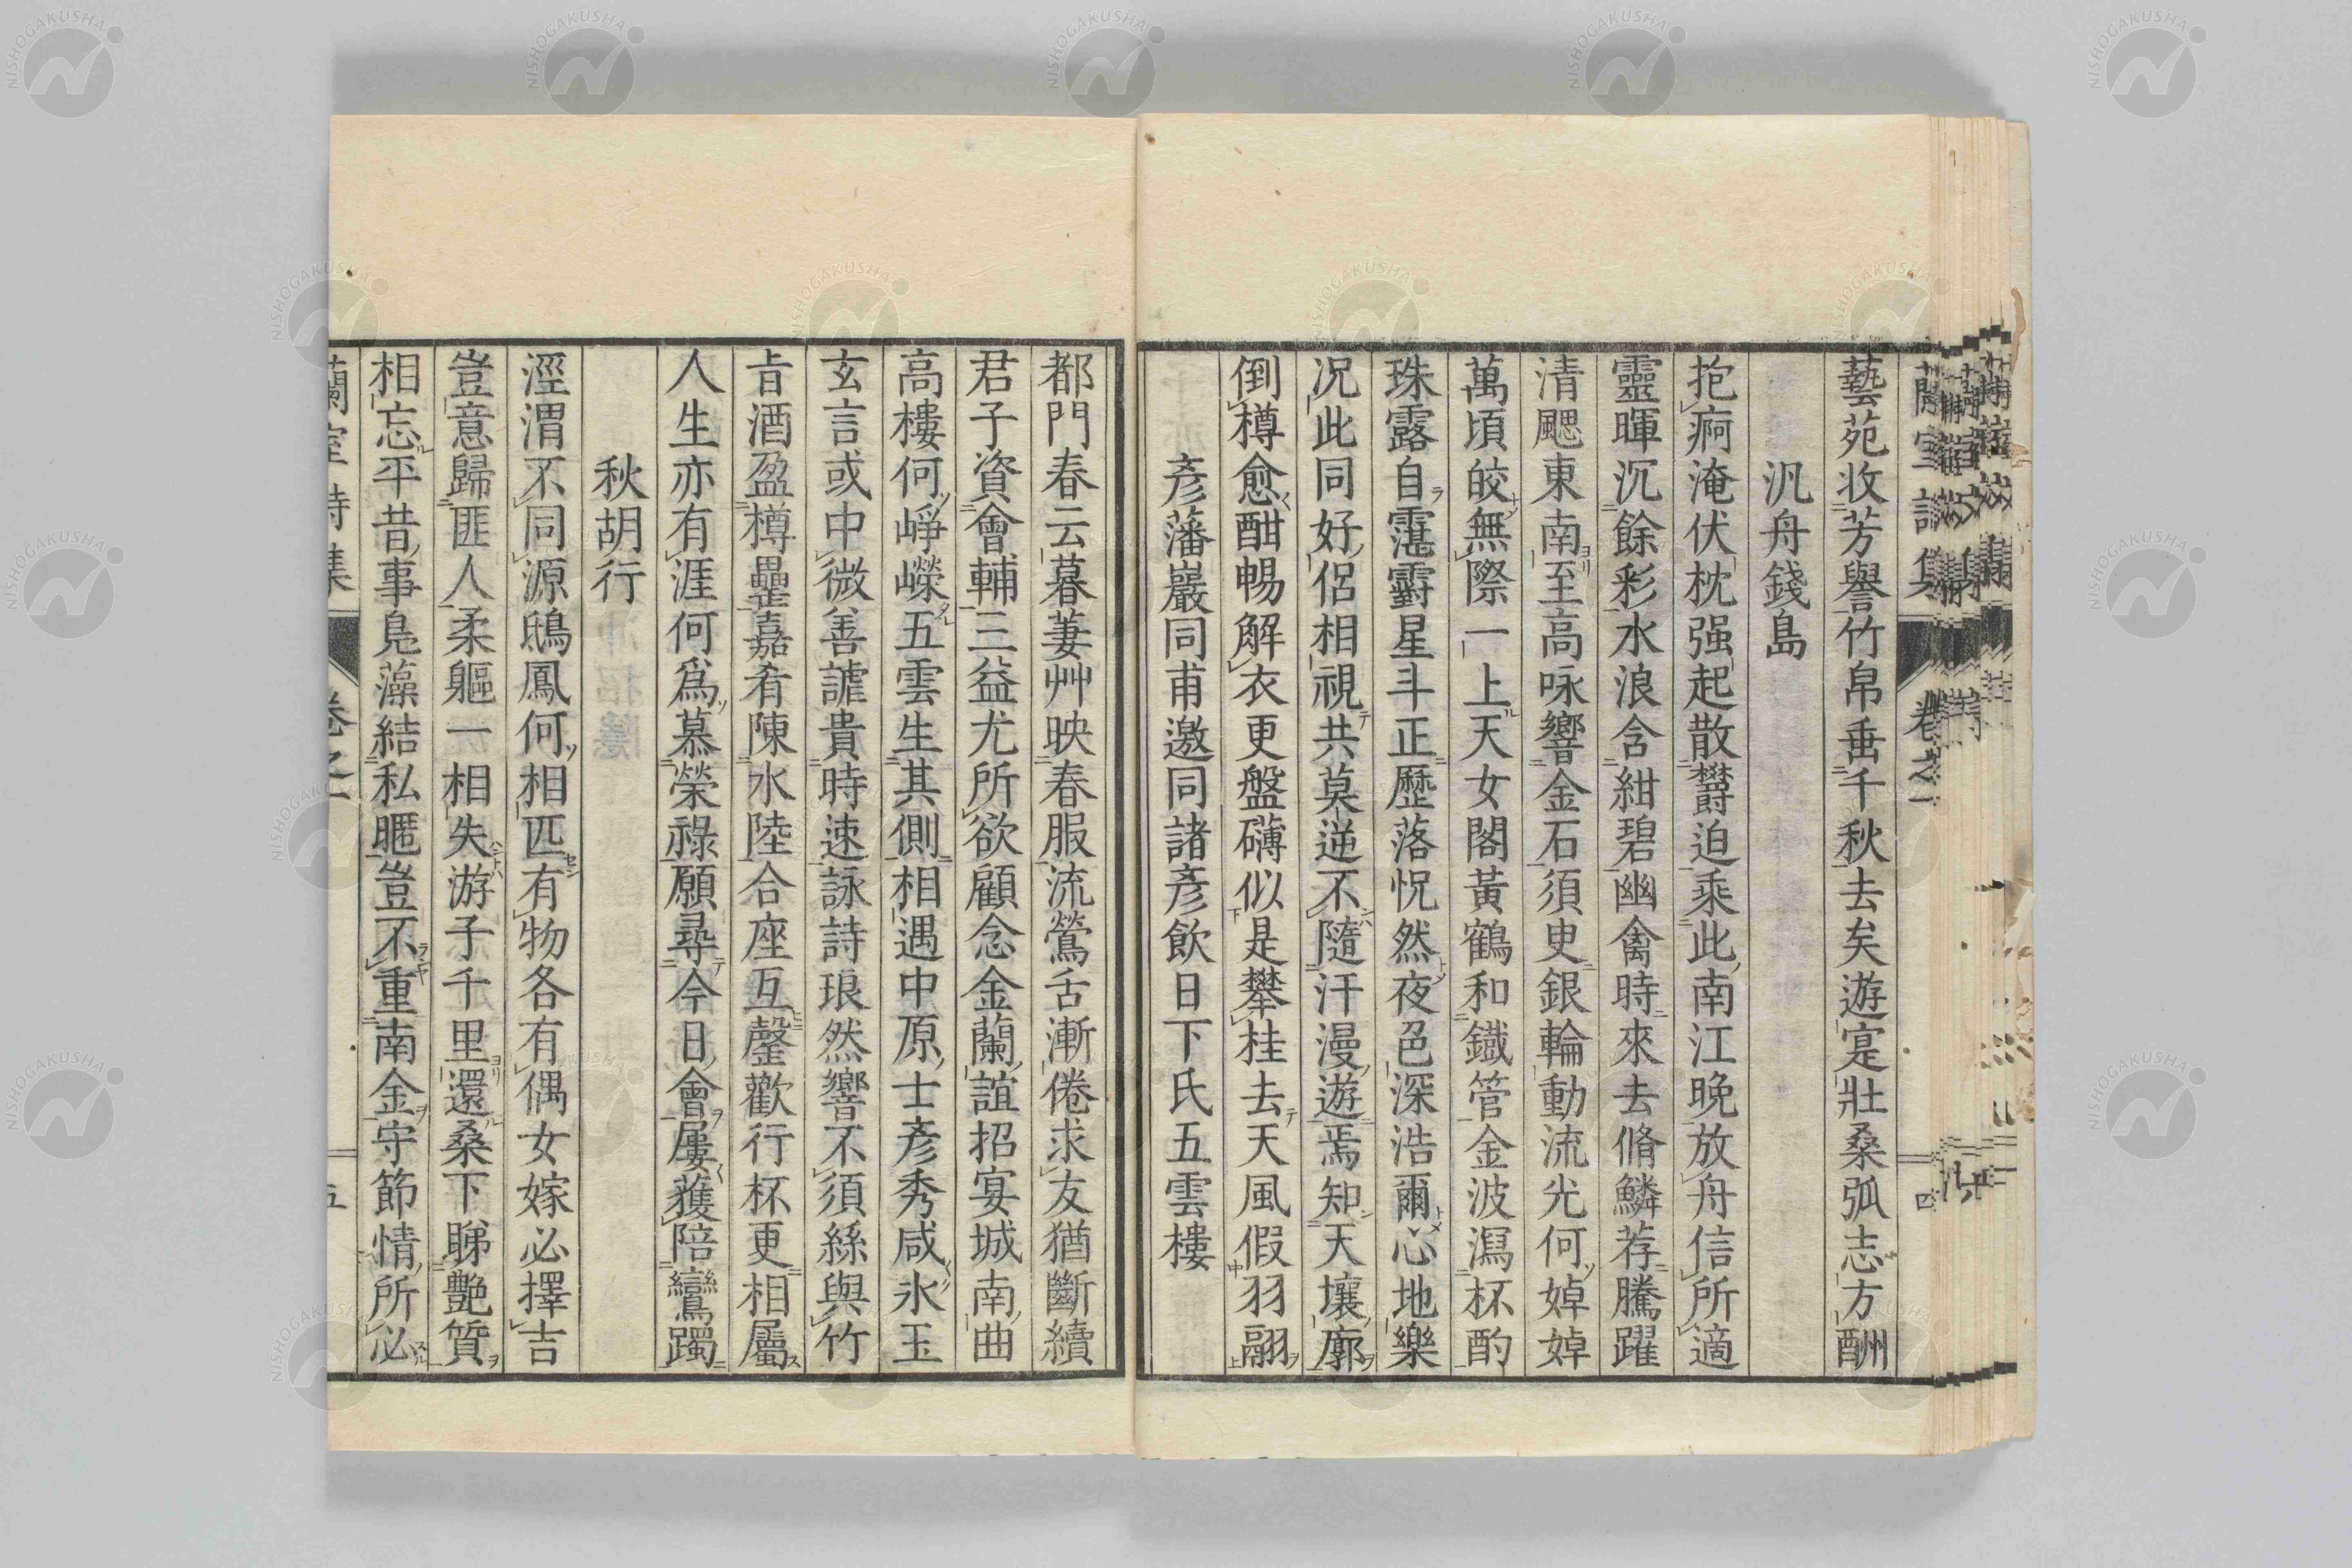 藝苑收芳譽竹帛垂千秋去矣遊寔壯桑弧志方酬
汎舟錢島
抱痾淹伏枕强起散欝迫乘此南江晚放舟信所適
靈暉沉餘彩水浪含紺碧幽禽時來去脩鱗荐騰躍
清颸東南至高咏響金石須臾銀輪動流光何婥婥
萬頃皎無際一上天女閣黃鶴和鐵管金波瀉杯酌
珠露自霮䨴星斗正歷落怳然夜色深浩爾心地樂
况此同好侶相視共莫逆不隨汗漫遊焉知天壤廓
倒樽愈酣暢解衣更盤礴似是攀桂去天風假羽翮
彥藩巖同甫邀同諸彥飲日下氏五雲樓
都門春云暮萋艸映春服流鶯舌漸倦求友猶斷續
君子資會輔三益尤所欲顧念金蘭誼招宴城南曲
高樓何崢嶸五雲生其側相遇中原士彥秀咸氷玉
玄言或中微善謔貴時速詠詩琅然響不須絲與竹
旨酒盈樽罍嘉肴陳水陸合座互罄歡行杯更相屬
人生亦有涯何爲慕榮祿願尋今日會屢獲陪鸞躅
秋胡行
涇渭不同源鴟鳳何相匹有物各有偶女嫁必擇吉
豈意歸匪人柔軀一相失游子千里還桑下睇艷質
相忘平昔事鳧藻結私暱豈不重南金守節情所必
蘭室詩集 卷之一 五
蘭室詩集 卷之一 四
NISHOGAKUSHA